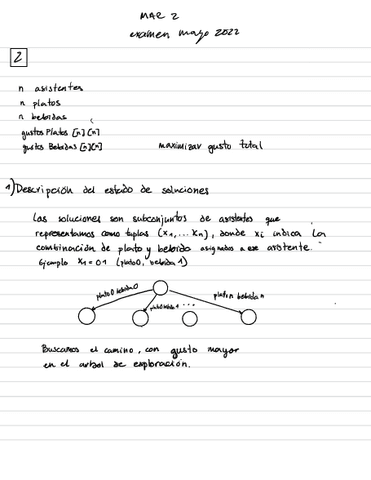 MAR 2
examen mayo 2022
2
n asistentes
n platos
n bebidas
gustos Platos [n][n]
gustos Bebidas [n][n] maximizar gusto total
1) Descripción del estado de soluciones
Las soluciones son subconjuntos de asistentes que
representamos como tuplas (x1,... xn), donde xi indica la
combinación de plato y bebida asignados a ese asistente.
Ejemplo x1=01 (plato0, bebida1)
plato0 bebida0
plato0 bebida 1 ...
platon bebida n
Buscamos el camino, con gusto mayor
en el arbol de exploración.